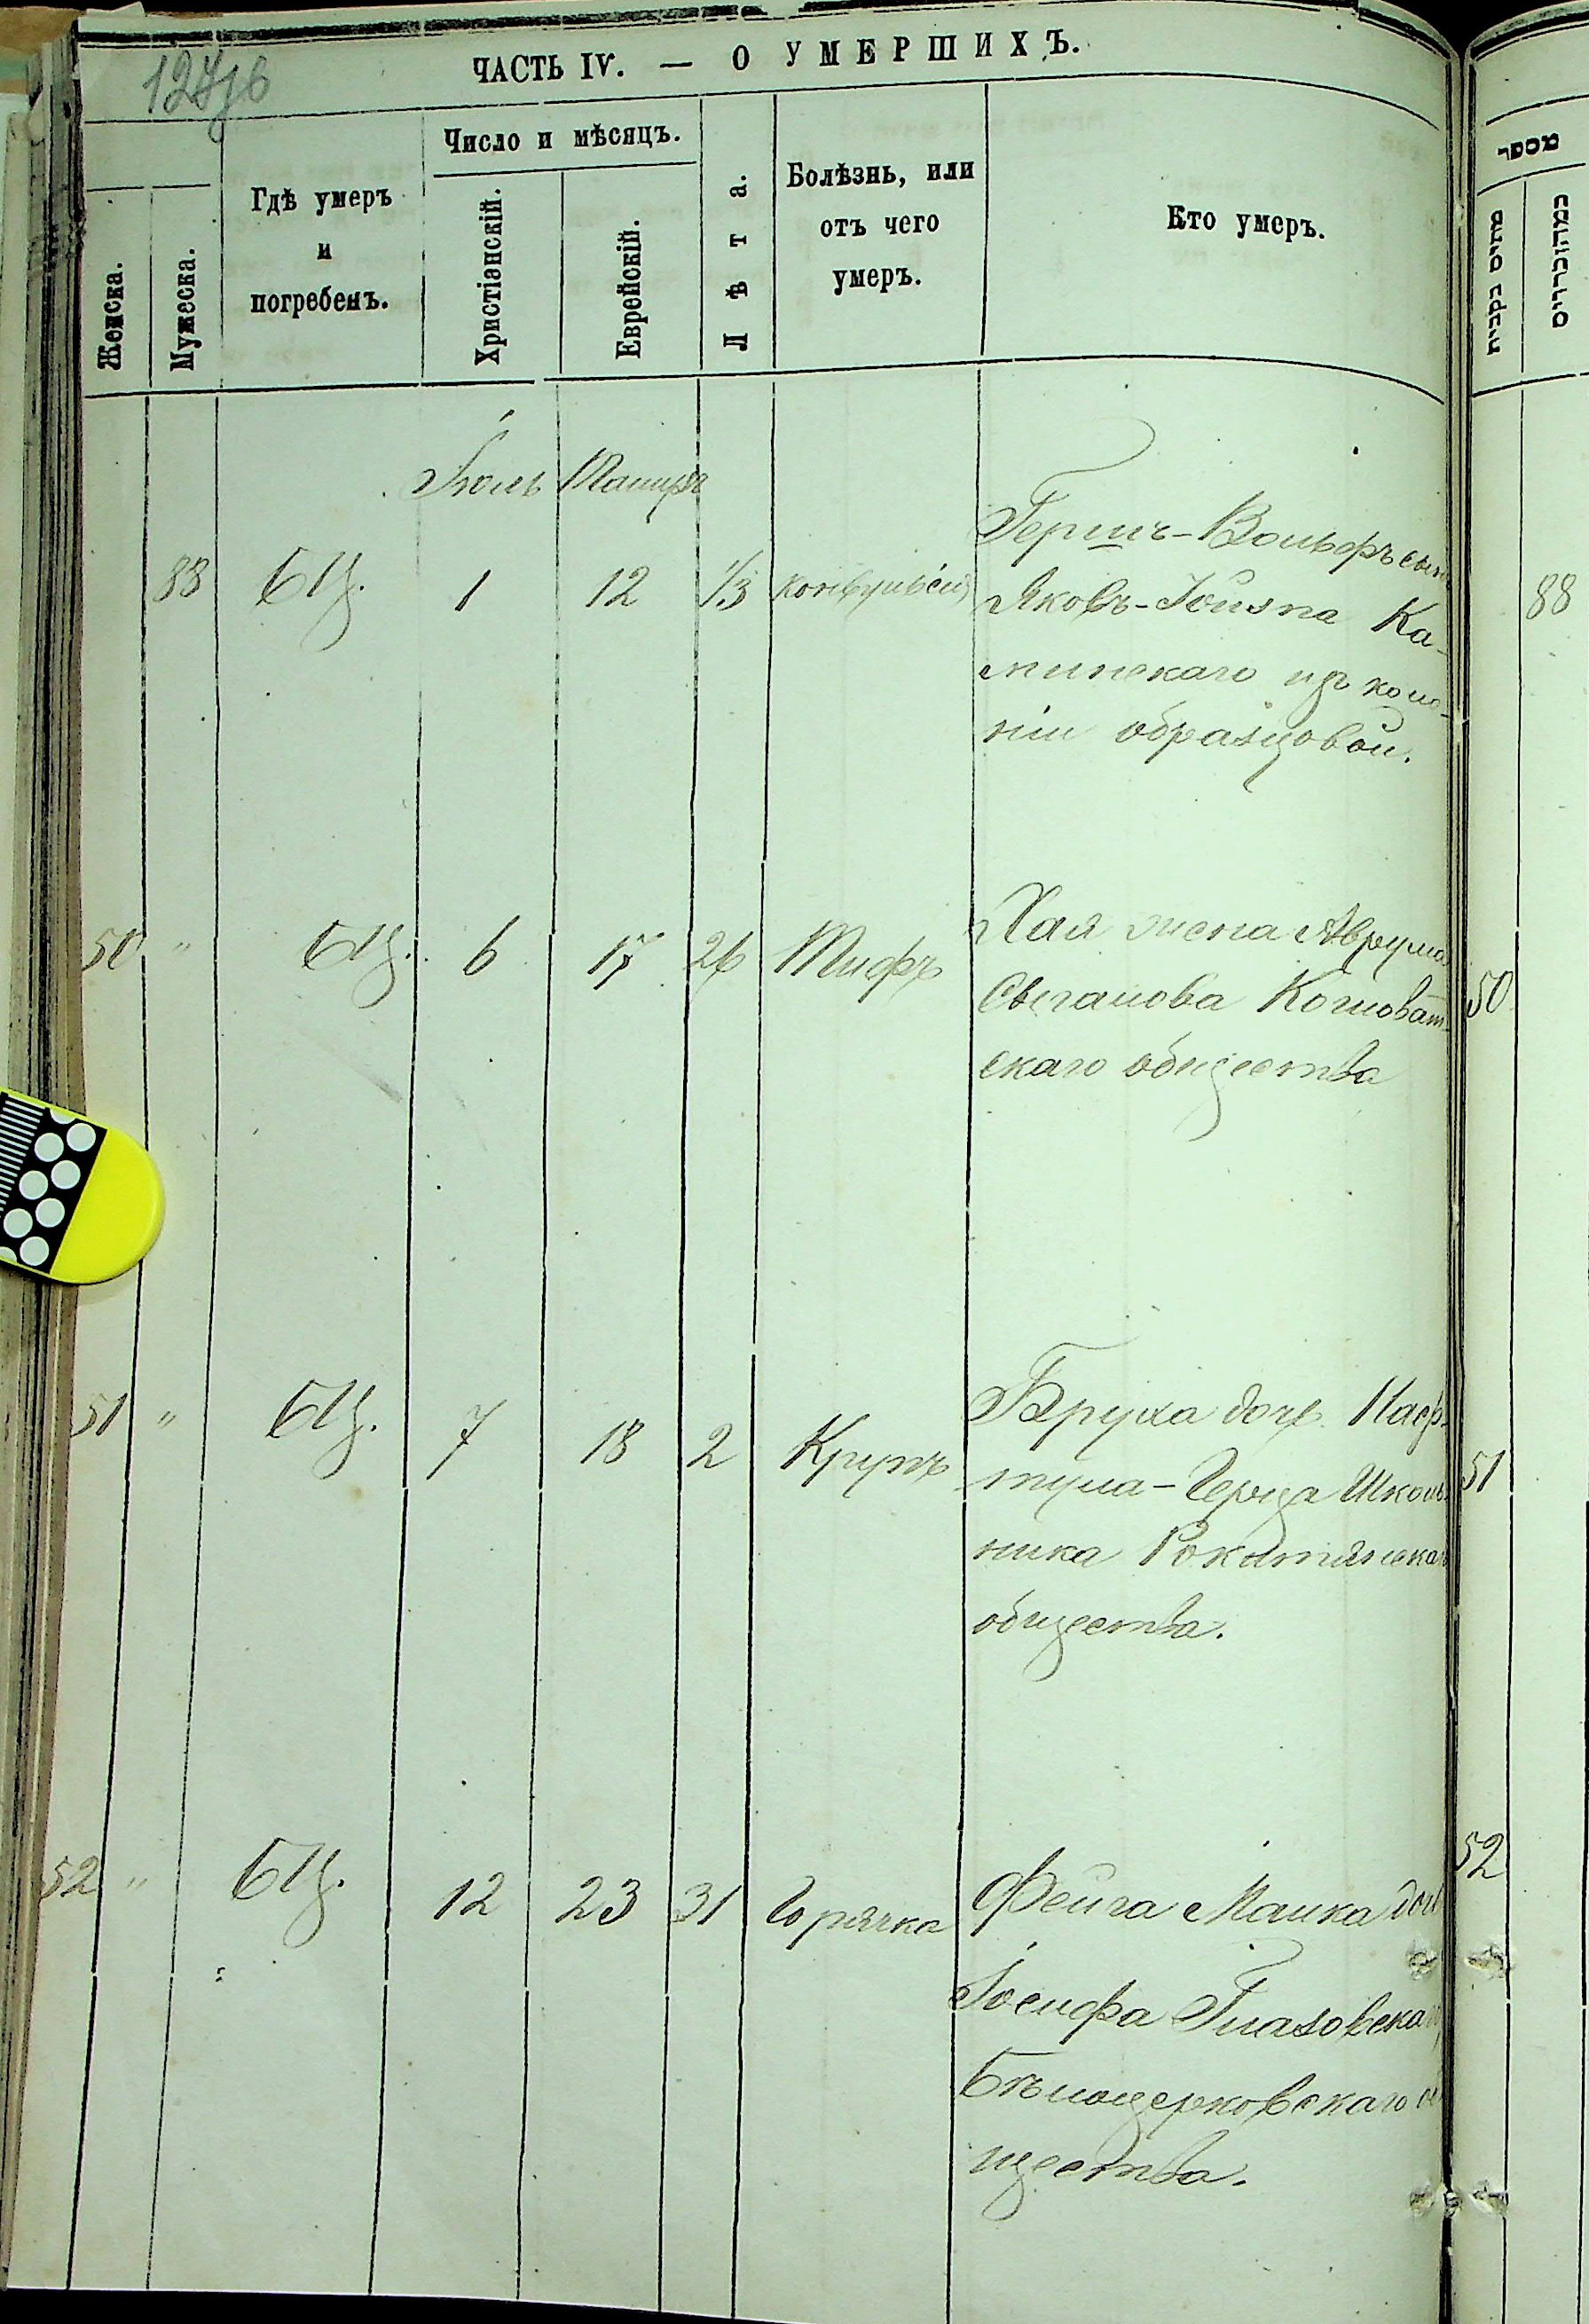 ЧАСТЬ IV. — О УМЕРШИХЪ.
Женска.
Мужеска.
Гдѣ умеръ
и
погребенъ.
Число и мѣсяцъ.
Христіанскій.
Еврейскій.
Лѣта.
Болѣзнь, или
отъ чего
умеръ.
Кто умеръ.
מספר
מתים נקבות
כמהזכרים
Іюль
88 БЦ. 1 12 1/3 конвульсія
Гершъ-Вольфъ сынъ
Яковъ-Іойзпа Ка-
минскаго изъ коло-
ніи образцовой.
88
50 " БЦ. 6 17 26 Тифъ
Хая жена Аврума
Котловат-
скаго общества
50
51 " БЦ. 7 18 2 Крупъ
Бруха дочь Наф-
тула-Герца Школь-
ника Рокитянскаго
общества.
51
52 " БЦ. 12 23 31 Горячка
Фейга Малка дочь
Іосифа Глазовскаго
Бѣлоцерковскаго об
щества.
52